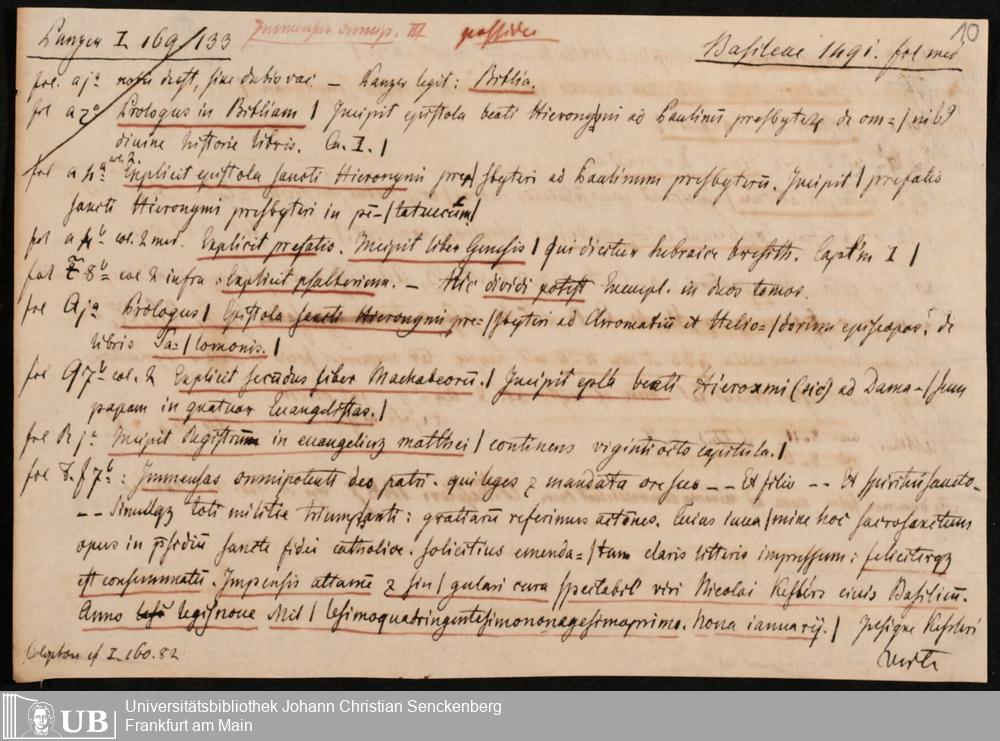 Panzer I 169/133 Immensas omnip. III possideo Basileae 1491. fol med 10
fol. aja deest, sine dubio vac. — Panzer legit: Biblia.
fol a2a Prologus in Bibliam | Incipit epistola beati Hieronymi ad Paulinū presbyterū de om=/nibꝰ
divine historie libris. Ca. I. |
fol a4a col. 2. Explicit epistola sancti Hieronymi pre/sbyteri ad Paulinum presbyterū. Incipit | prefatio
sancti Hieronymi presbyteri in pē=/tateucum/
fol a4b col. 2 med. Explicit prefatio. Incipit liber Genesis | qui dicitur hebraice bresith. Captm I |
fol 8b col 2 infra: Explicit psalterium. — Hic dividi potest Exempl. in duos tomos.
fol Aja Prologus | Epistola sancti Hieronymi pre=/sbyteri ad Chromatiū et Helio=/dorum episcopos: de
libris Sa=/lomonis. |
fol Q7b col. 2 Explicit secūdus liber Machabeorū. | Incipit epla beati Hieronimi (sic) ad Dama=/sum
papam in quatuor Euangelistas. |
fol Rja: Incipit Registrum in euangeliū matthei | continens vigintiocto capitula. |
fol f7b: Immensas omnipotenti deo patri. qui leges ⁊ mandata — — Et filio — — Et spiritui sancto —
— — Simulqꝫ toti militie triumphanti: gratiarū referimus actōnes. Cuius iuua/mine hoc sacrosanctum
opus in p̄sidiū sancte fidei catholice. solicitius emenda=/tum claris litteris impressum: feliciterqꝫ
est consummatū. Impensis attamē ⁊ sin/gulari cura spectabil' viri Nicolai Keslers ciuis Basiliēn.
Anno legis noue Mil/lesimoquadringentesimononagesimoprimo. Nona ianuarij. | Insigne Kesleri
Colophon cf I. 160. 82 verte
Universitätsbibliothek Johann Christian Senckenberg
Frankfurt am Main
UB